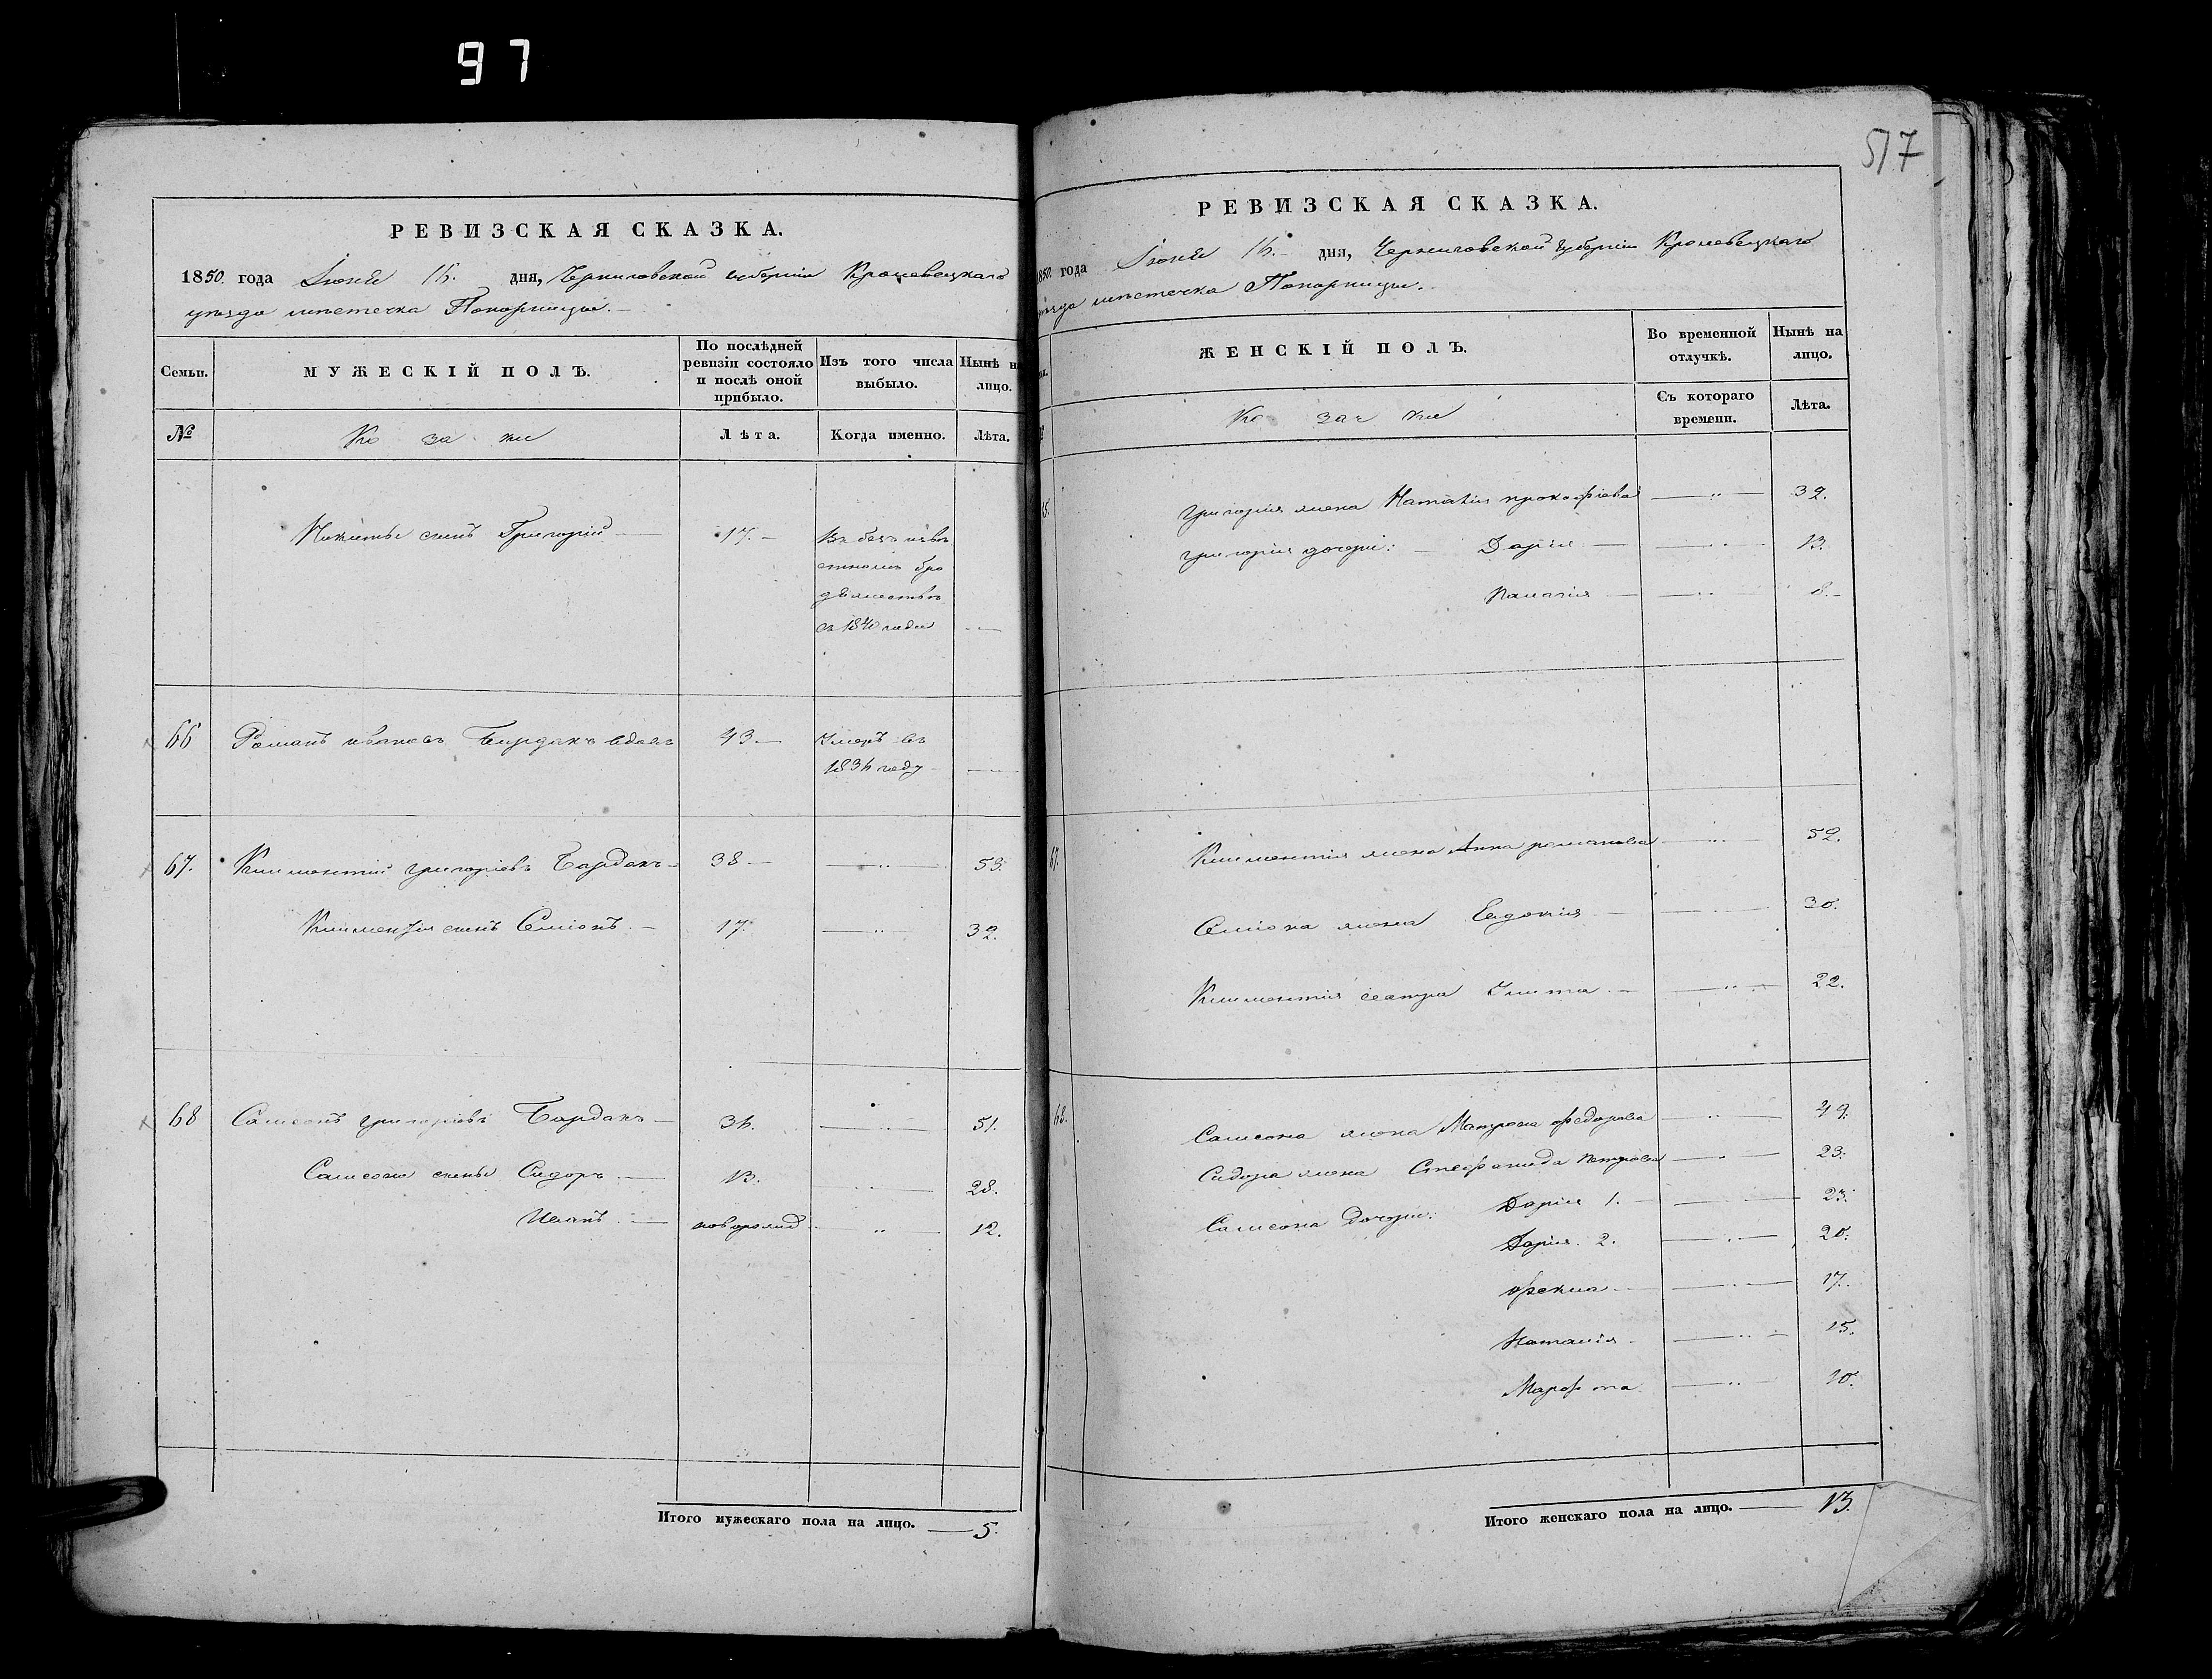 97
517
РЕВИЗСКАЯ СКАЗКА.
1850. года Іюня 15. дня, Черниговской губерніи Кролевецкаго
уѣзда мѣстечка Понорницы.
Семьи.
МУЖЕСКІЙ ПОЛЪ.
По послѣдней ревизіи состояло и послѣ оной прибыло.
Изъ того числа выбыло.
Нынѣ на лицо.
№
Ко за ки
Лѣта.
Когда именно.
Лѣта.
Никиты сынъ Григорій 17.
Въ безъизвѣ
стномъ бро
дяжествѣ
съ 1840 года
66 Романъ Ивановъ Бардакъ вдовъ 43 Умеръ въ
1835 году
67. Климентій григоріевъ Бардакъ 38 — " — 53.
Климентія сынъ Семіонъ. 17. — " — 32.
68 Самсонъ григоріевъ Бардакъ 35. — " — 51.
Самсона сыны Сидоръ. 13. — " — 28.
Иванъ. новорожд — " — 12.
Итого мужескаго пола на лицо. — 5.
РЕВИЗСКАЯ СКАЗКА.
1850. года Іюня 15. дня, Черниговской губерніи Кролевецкаго
уѣзда мѣстечка Понорницы.
ЖЕНСКІЙ ПОЛЪ.
Во временной отлучкѣ.
Нынѣ на лицо.
Ко за ки
Съ котораго времени.
Лѣта.
65. Григорія жена Наталія прокофіева — " — 32.
григорія дочери: Дарія — " — 13.
— " — 8.
67. Климентія жена Анна романова — " — 52.
Семіона жена Евдокія — " — 30.
Климентія сестра Улита — " — 22.
68. Самсона жена Матрона федорова — " — 49.
Сидора жена Стефанида петрова — " — 23.
Самсона дочери: Дарія 1. — " — 23.
Дарія. 2. — " — 20.
Фекла — " — 17.
Наталія. — " — 15.
Марфа — " — 10.
Итого женскаго пола на лицо. — 13.